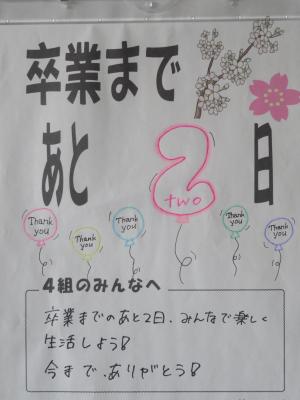 卒業まで
あと 2 日
two
Thank you
Thank you
Thank you
Thank you
Thank you
4組のみんなへ
卒業までのあと2日、みんなで楽しく
生活しよう!
今まで、ありがとう!